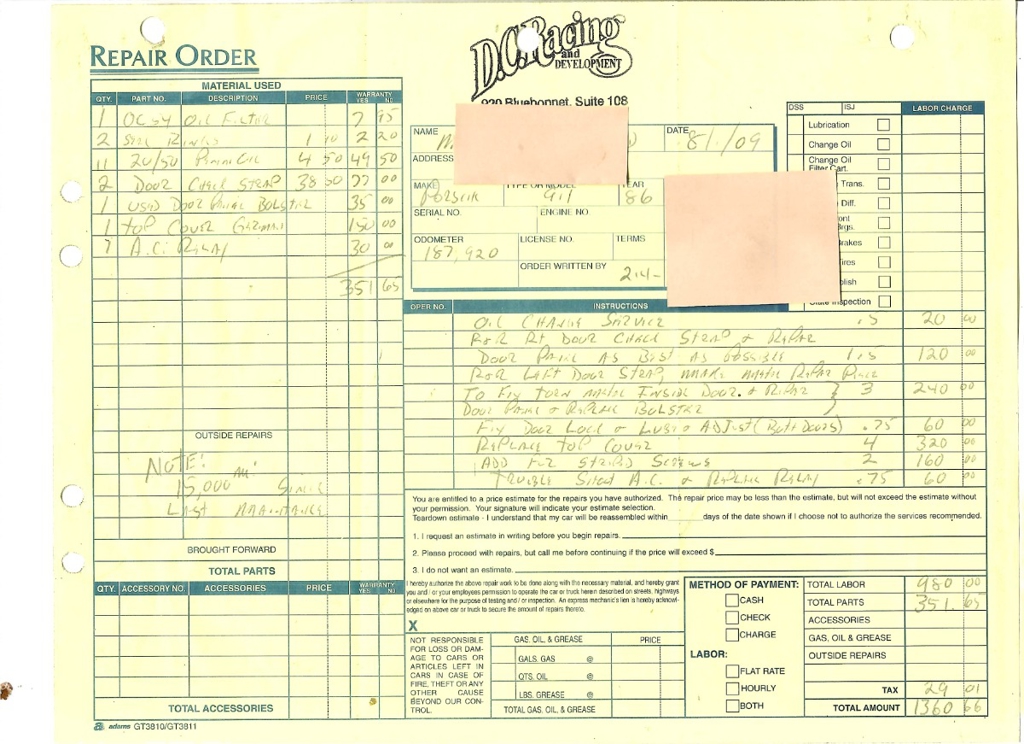 REPAIR ORDER
D.C. Racing
and
DEVELOPMENT
920 Bluebonnet, Suite 108
MATERIAL USED
QTY. PART NO. DESCRIPTION PRICE WARRANTY YES NO
1 OC54 Oil Filter 7 95
2 Seal Rings 1 10 2 20
11 20/50 Oil 4 50 49 50
2 Door Check Strap 38 50 77 00
1 Used Door Panel Bolster 35 00
1 Top Cover German 150 00
A.C. Relay 30 00
351 65
OUTSIDE REPAIRS
NOTE!
15,000 mi Since
Last
BROUGHT FORWARD
TOTAL PARTS
QTY. ACCESSORY NO. ACCESSORIES PRICE WARRANTY YES NO
TOTAL ACCESSORIES
adams GT3810/GT3811
NAME
DATE 8/ /09
ADDRESS
MAKE Porsche
TYPE OR MODEL 911
YEAR 86
SERIAL NO.
ENGINE NO.
ODOMETER 187,920
LICENSE NO.
TERMS
ORDER WRITTEN BY
DSS ISJ LABOR CHARGE
Lubrication
Change Oil
Change Oil
Filter Cart.
Trans.
Diff.
Inspection
OPER NO. INSTRUCTIONS
Oil Change Service .5 20 00
R&R Rt Door Check Strap & Repair
Door Panel As Best As Possible 1.5 120 00
R&R Left Door Strap, Make Metal Repair Piece
To Fix Torn Metal Inside Door & Repair 3 240 00
Door Panel & Replace Bolster
Fix Door Lock & Lube & Adjust (Both Doors) .75 60 00
Replace Top Cover 4 320 00
Add For Striped Screws 2 160 00
Trouble Shoot A.C. & Replace Relay .75 60 00
You are entitled to a price estimate for the repairs you have authorized. The repair price may be less than the estimate, but will not exceed the estimate without
your permission. Your signature will indicate your estimate selection.
Teardown estimate - I understand that my car will be reassembled within ______ days of the date shown if I choose not to authorize the services recommended.
1. I request an estimate in writing before you begin repairs
2. Please proceed with repairs, but call me before continuing if the price will exceed $
3. I do not want an estimate.
I hereby authorize the above repair work to be done along with the necessary material, and hereby grant
you and / or your employees permission to operate the car or truck herein described on streets, highways
or elsewhere for the purpose of testing and / or inspection. An express mechanic's lien is hereby acknowl-
edged on above car or truck to secure the amount of repairs thereto.
X
NOT RESPONSIBLE
FOR LOSS OR DAM-
AGE TO CARS OR
ARTICLES LEFT IN
CARS IN CASE OF
FIRE, THEFT OR ANY
OTHER CAUSE
BEYOND OUR CON-
TROL.
GAS. OIL, & GREASE PRICE
GALS. GAS @
QTS. OIL @
LBS. GREASE @
TOTAL GAS. OIL, & GREASE
METHOD OF PAYMENT:
CASH
CHECK
CHARGE
LABOR:
FLAT RATE
HOURLY
BOTH
TOTAL LABOR 980 00
TOTAL PARTS 351 65
ACCESSORIES
GAS. OIL & GREASE
OUTSIDE REPAIRS
TAX 29 01
TOTAL AMOUNT 1360 66